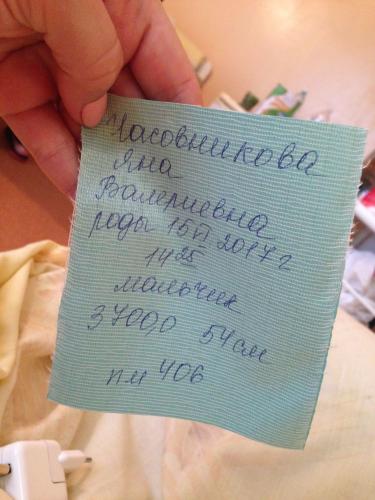 Часовникова
Яна
Валериевна
роды 15 VI 2017 г
14 25
мальчик
3700,0 54 см
пм 406